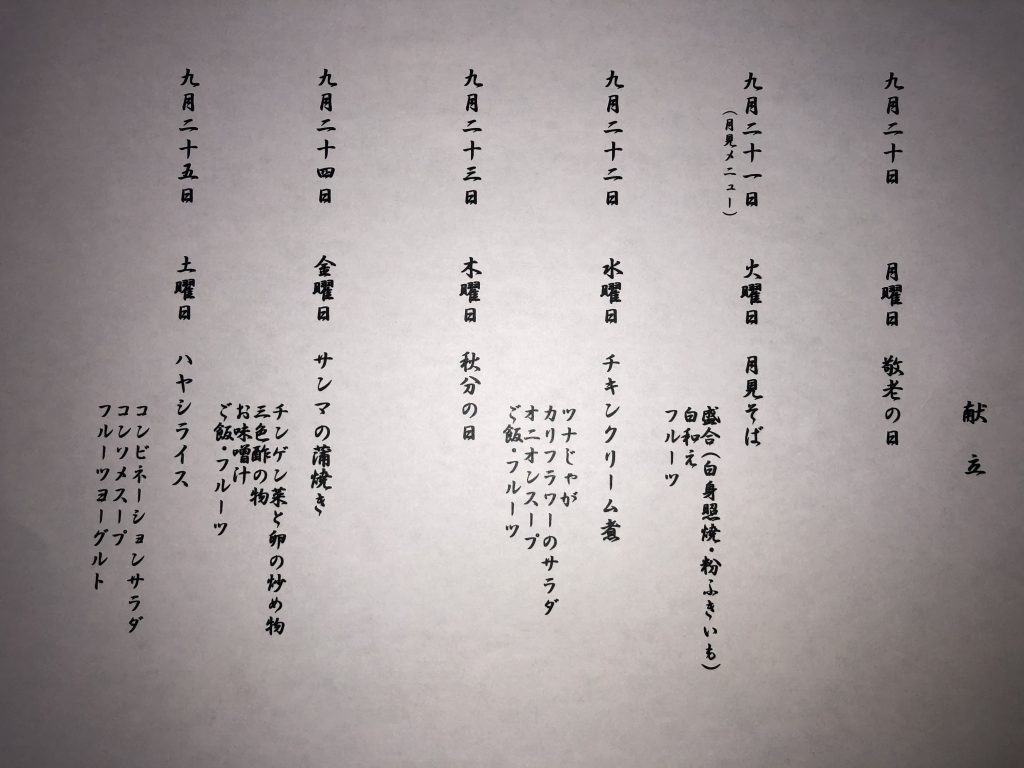 献立
九月二十日 月曜日 敬老の日
九月二十一日 火曜日 月見そば
(月見メニュー)
盛合(白身照焼・粉ふきいも)
白和え
フルーツ
九月二十二日 水曜日 チキンクリーム煮
ツナじゃが
カリフラワーのサラダ
オニオンスープ
ご飯・フルーツ
九月二十三日 木曜日 秋分の日
九月二十四日 金曜日 サンマの蒲焼き
チンゲン菜と卵の炒め物
三色酢の物
お味噌汁
ご飯・フルーツ
九月二十五日 土曜日 ハヤシライス
コンビネーションサラダ
コンソメスープ
フルーツヨーグルト